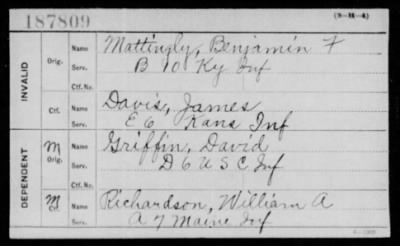 187809
(3-H-4)
INVALID
Orig.
Name
Mattingly, Benjamin F
Serv.
B 10 Ky Inf
Ctf. No.
Ctf.
Name
Davis, James
Serv.
E 6 Kans Inf
DEPENDENT
M
Orig.
Name
Griffin, David
Serv.
D 6 U S C Inf
Ctf. No.
M
Ctf.
Name
Richardson, William A
Serv.
A 7 Maine Inf